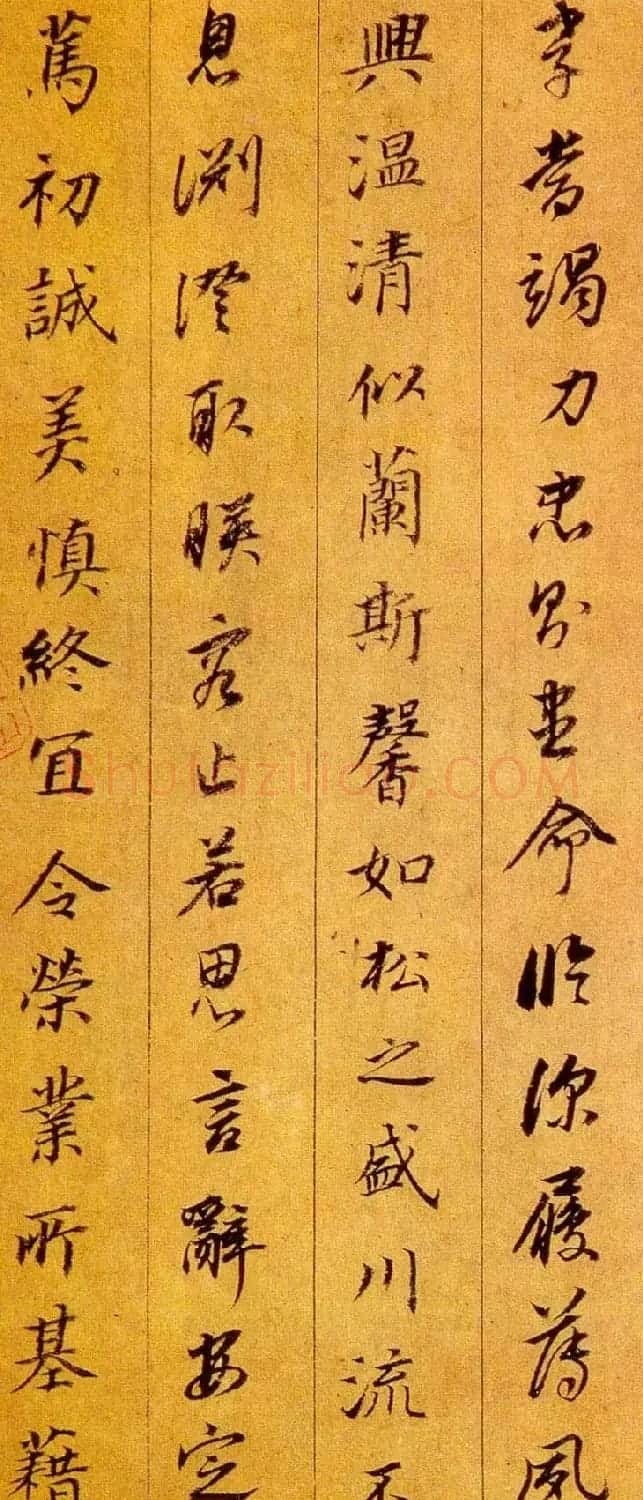 孝當竭力忠則盡命臨深履薄夙
興温清似蘭斯馨如松之盛川流不
息淵澄取暎容止若思言辭安定
篤初誠美慎終宜令榮業所基藉